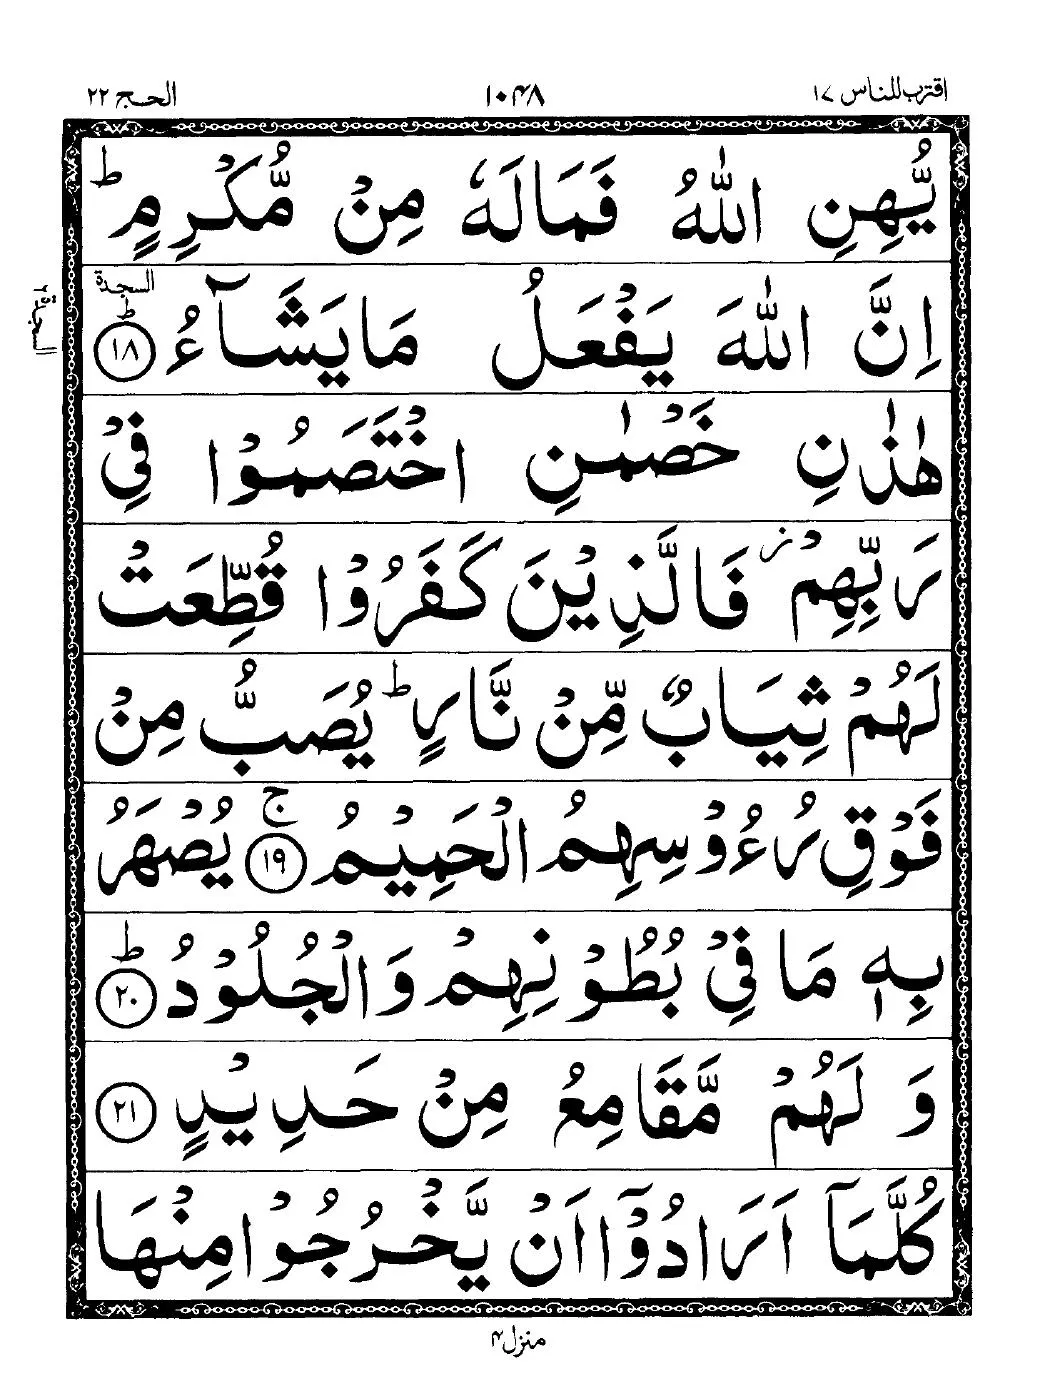 اقترب للناس ١٧ ١٠۴٨ الحج ٢٢
يُّهِنِ اللّٰهُ فَمَالَهٗ مِنْ مُّكْرِمٍ ؕ
السجدة
اِنَّ اللّٰهَ يَفْعَلُ مَايَشَآءُ ؕ ١٨
هٰذٰنِ خَصْمٰنِ اخْتَصَمُوْا فِيْ
رَبِّهِمْ ز فَالَّذِيْنَ كَفَرُوْا قُطِّعَتْ
لَهُمْ ثِيَابٌ مِّنْ نَّارٍ ؕ يُصَبُّ مِنْ
فَوْقِ رُءُوْسِهِمُ الْحَمِيْمُ ۚ ١٩ يُصْهَرُ
بِهٖ مَا فِيْ بُطُوْنِهِمْ وَالْجُلُوْدُ ؕ ٢٠
وَ لَهُمْ مَّقَامِعُ مِنْ حَدِيْدٍ ٢١
كُلَّمَآ اَرَادُوْٓا اَنْ يَّخْرُجُوْا مِنْهَا
منزل ۴